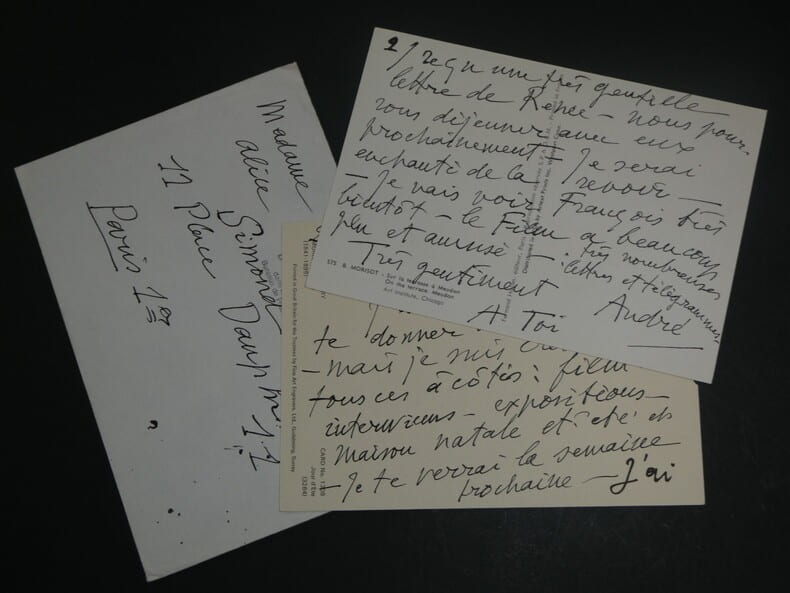 Madame
Alice
Simond
12 Place Dauphine
Paris 1er
te donner
- mais je suis
tous ces à côtés : film
interviews - expositions -
maison natale et été et
- Je te verrai la semaine
prochaine - J'ai
CARD No. 1868
Jour d'Eté
(3264)
(1841-1895)
Printed in Great Britain for the Trustees by Fine Art Engravers, Ltd., Godalming, Surrey
2 J reçu une très gentille
lettre de Renée - nous pour-
rons déjeuner avec eux
prochainement - Je serai
enchanté de la revoir -
- Je vais voir François très
bientôt - le Film a beaucoup
plu et amusé - très nombreuses
lettres et télégrammes
Très gentiment
A Toi
André
575 B. MORISOT - Sur la terrasse à Meudon
On the terrace, Meudon
Art Institute, Chicago